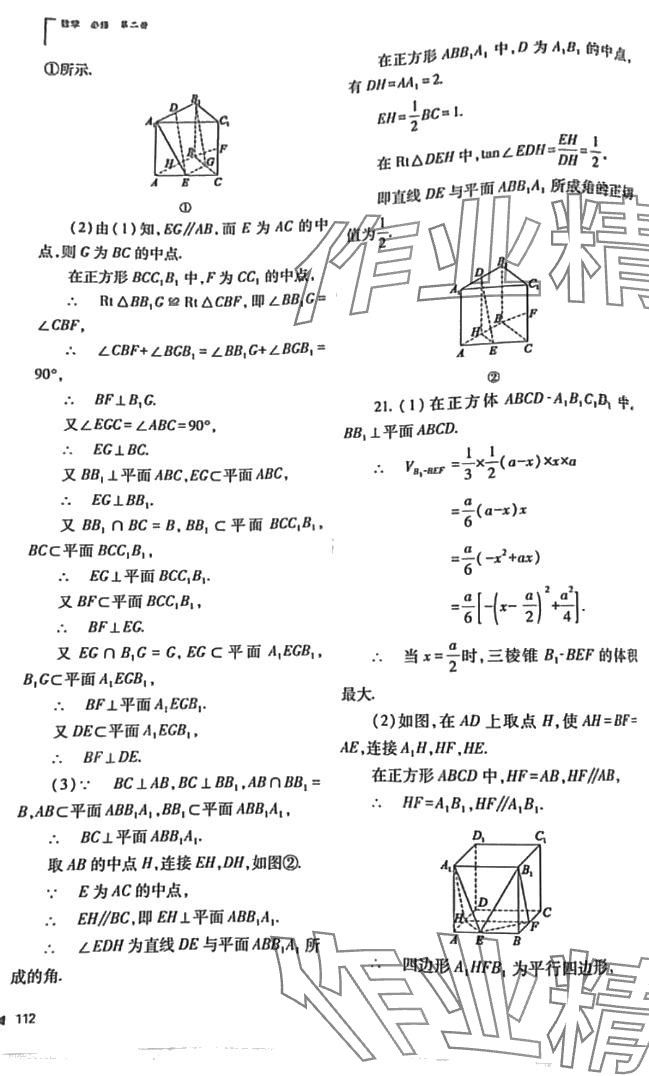 数学 必修 第二册
①所示.
A₁ D B₁ C₁ H B F G A E C
①
(2)由(1)知,EG∥AB,而 E 为 AC 的中
点,则 G 为 BC 的中点.
在正方形 BCC₁B₁ 中,F 为 CC₁ 的中点,
∴ Rt△BB₁G≌Rt△CBF,即∠BB₁G=
∠CBF,
∴ ∠CBF+∠BGB₁=∠BB₁G+∠BGB₁=
90°,
∴ BF⊥B₁G.
又∠EGC=∠ABC=90°,
∴ EG⊥BC.
又 BB₁⊥平面 ABC,EG⊂平面 ABC,
∴ EG⊥BB₁.
又 BB₁∩BC=B,BB₁⊂平面 BCC₁B₁,
BC⊂平面 BCC₁B₁,
∴ EG⊥平面 BCC₁B₁.
又 BF⊂平面 BCC₁B₁,
∴ BF⊥EG.
又 EG∩B₁G=G,EG⊂平面 A₁EGB₁,
B₁G⊂平面 A₁EGB₁,
∴ BF⊥平面 A₁EGB₁.
又 DE⊂平面 A₁EGB₁,
∴ BF⊥DE.
(3)∵ BC⊥AB,BC⊥BB₁,AB∩BB₁=
B,AB⊂平面 ABB₁A₁,BB₁⊂平面 ABB₁A₁,
∴ BC⊥平面 ABB₁A₁.
取 AB 的中点 H,连接 EH,DH,如图②.
∵ E 为 AC 的中点,
∴ EH∥BC,即 EH⊥平面 ABB₁A₁.
∴ ∠EDH 为直线 DE 与平面 ABB₁A₁ 所
成的角.
112
在正方形 ABB₁A₁ 中,D 为 A₁B₁ 的中点,
有 DH=AA₁=2.
EH=1/2 BC=1.
在 Rt△DEH 中,tan∠EDH=EH/DH=1/2.
即直线 DE 与平面 ABB₁A₁ 所成角的正切
值为1/2.
A₁ D B₁ C₁ H B F A E C
②
21. (1)在正方体 ABCD-A₁B₁C₁D₁ 中,
BB₁⊥平面 ABCD.
∴ V_{B₁-BEF}=1/3×1/2(a-x)×x×a
=a/6(a-x)x
=a/6(-x²+ax)
=a/6[-(x-a/2)²+a²/4].
∴ 当 x=a/2时,三棱锥 B₁-BEF 的体积
最大.
(2)如图,在 AD 上取点 H,使 AH=BF=
AE,连接 A₁H,HF,HE.
在正方形 ABCD 中,HF=AB,HF∥AB,
∴ HF=A₁B₁,HF∥A₁B₁.
D₁ C₁ A₁ B₁ D C H F A E B
∴ 四边形 A₁HFB₁ 为平行四边形,
作业精
作业精